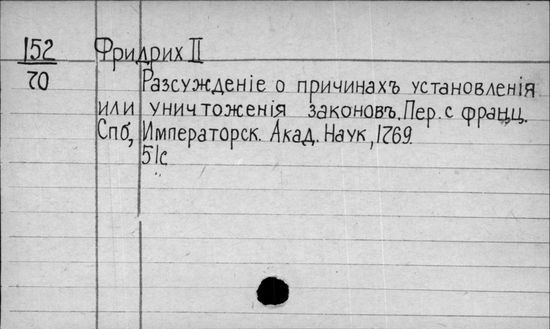 152 Фридрих II
70 Разсужденіе о причинахъ установленія
или уничтоженія законовъ. Пер. с франц.
Спб, Императорск. Акад. Наук, 1769.
51с